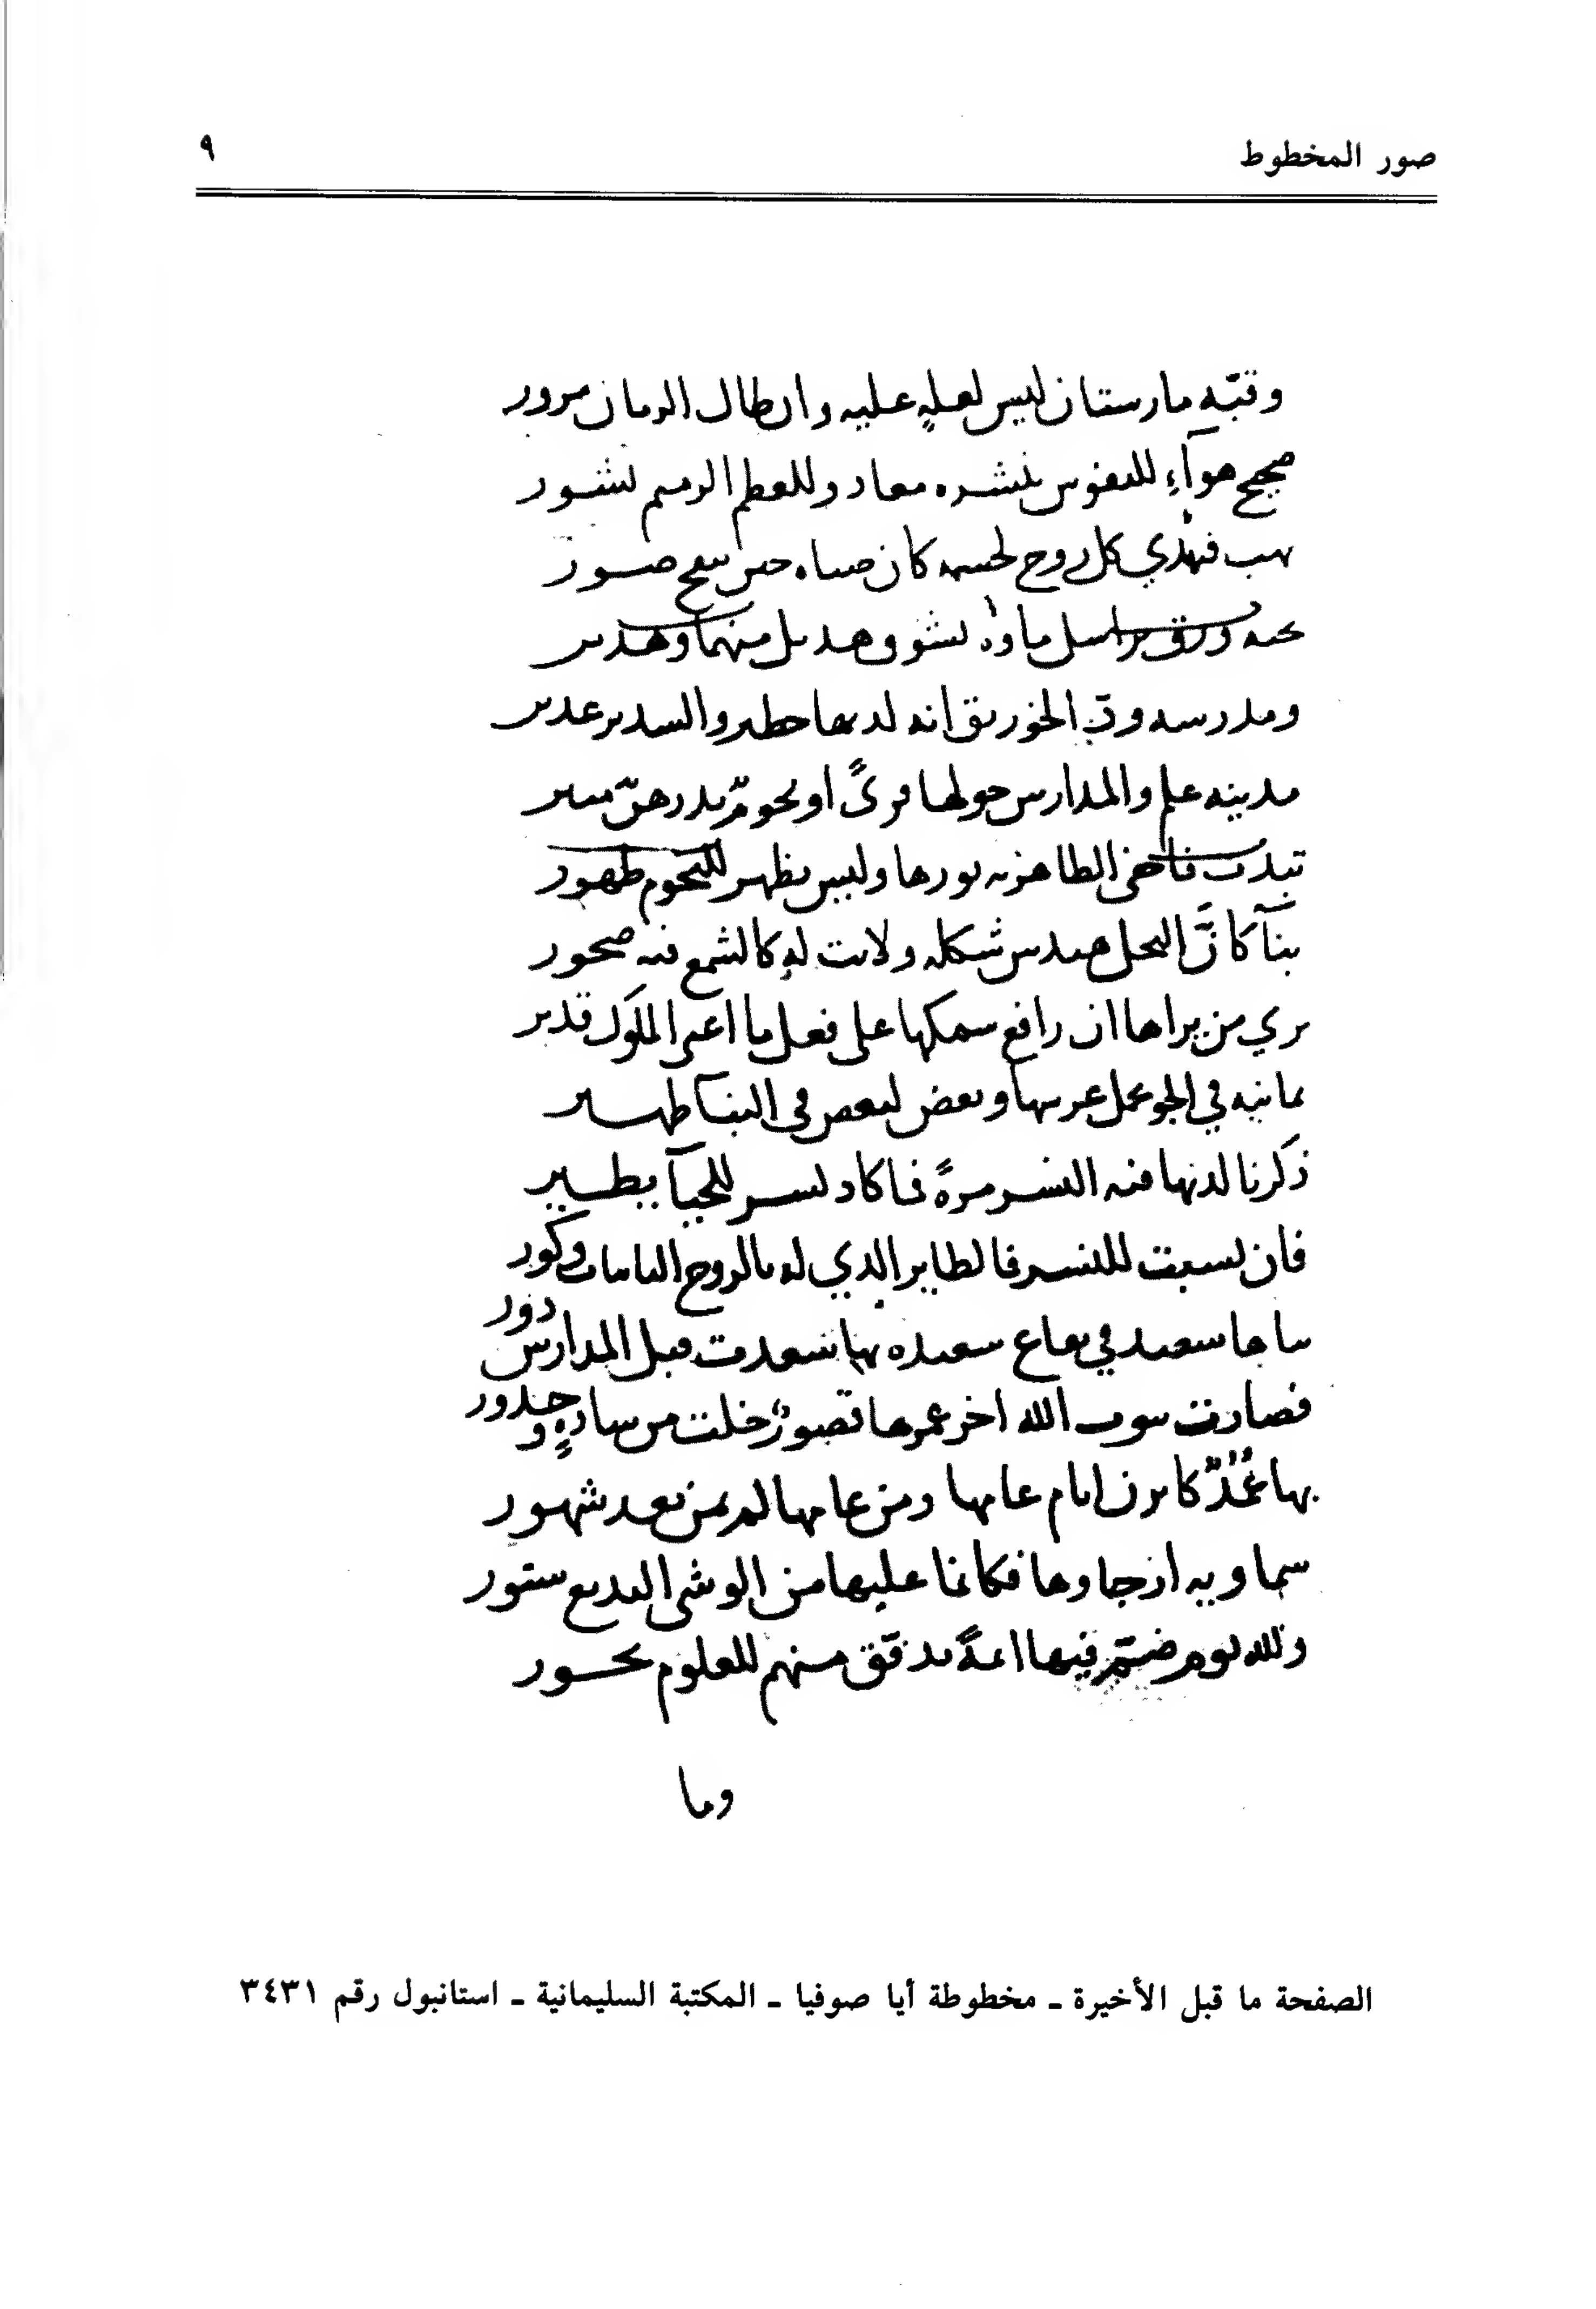 صور المخطوط
٩
وقبّة مارستان ليس لعلةٍ عليه وان طال الزمان مرور
صحيح هوآءٍ للنفوس بنشره معاد وللعظم الرميم نشور
يهب فيهدي كل روح لجسمه كان صباه حين ينفخ صور
ورق ماوه هديل منهما وهدير
ومدرسة ود الخورنق انه لديها حظير والسدير غدير
مدينة علم والمدارس حولها قرىً او نجومٌ بدرهنّ منير
تبدت فاخفى الظاهرية نورها وليس يظهر للنجوم ظهور
بنآ كانّ النحل هندس شكله ولانت له كالشمع فيه صخور
يرى من يراها ان رافع سمكها على فعل ما اعيى الملوك قدير
ثمانية في الجو يحمل عرشها وبعض لبعض في البنآ ظهير
ذكرنا لديها قبة النسر مرةً فما كاد نسر للحيآ يطير
فان نسبت للنسر فالطاير الذي له بالروج الثابتات وكور
بناها سعيد في بقاع سعيده بها سعدت قبل المدارس دور
فصارت بيوت الله اخر عمرها قصورٌ خلت من سادةٍ وخدور
بها عُمُدٌ كاثرن ايام عامها ومن عامها لم يمض بعد شهور
سماوية ارجاوها فكانما عليها من الوشى البديع ستور
ولله يوم ضم فيها ائمةً تدفق منهم للعلوم بحور
وما
الصفحة ما قبل الأخيرة ـ مخطوطة أيا صوفيا ـ المكتبة السليمانية ـ استانبول رقم ٣٤٣١